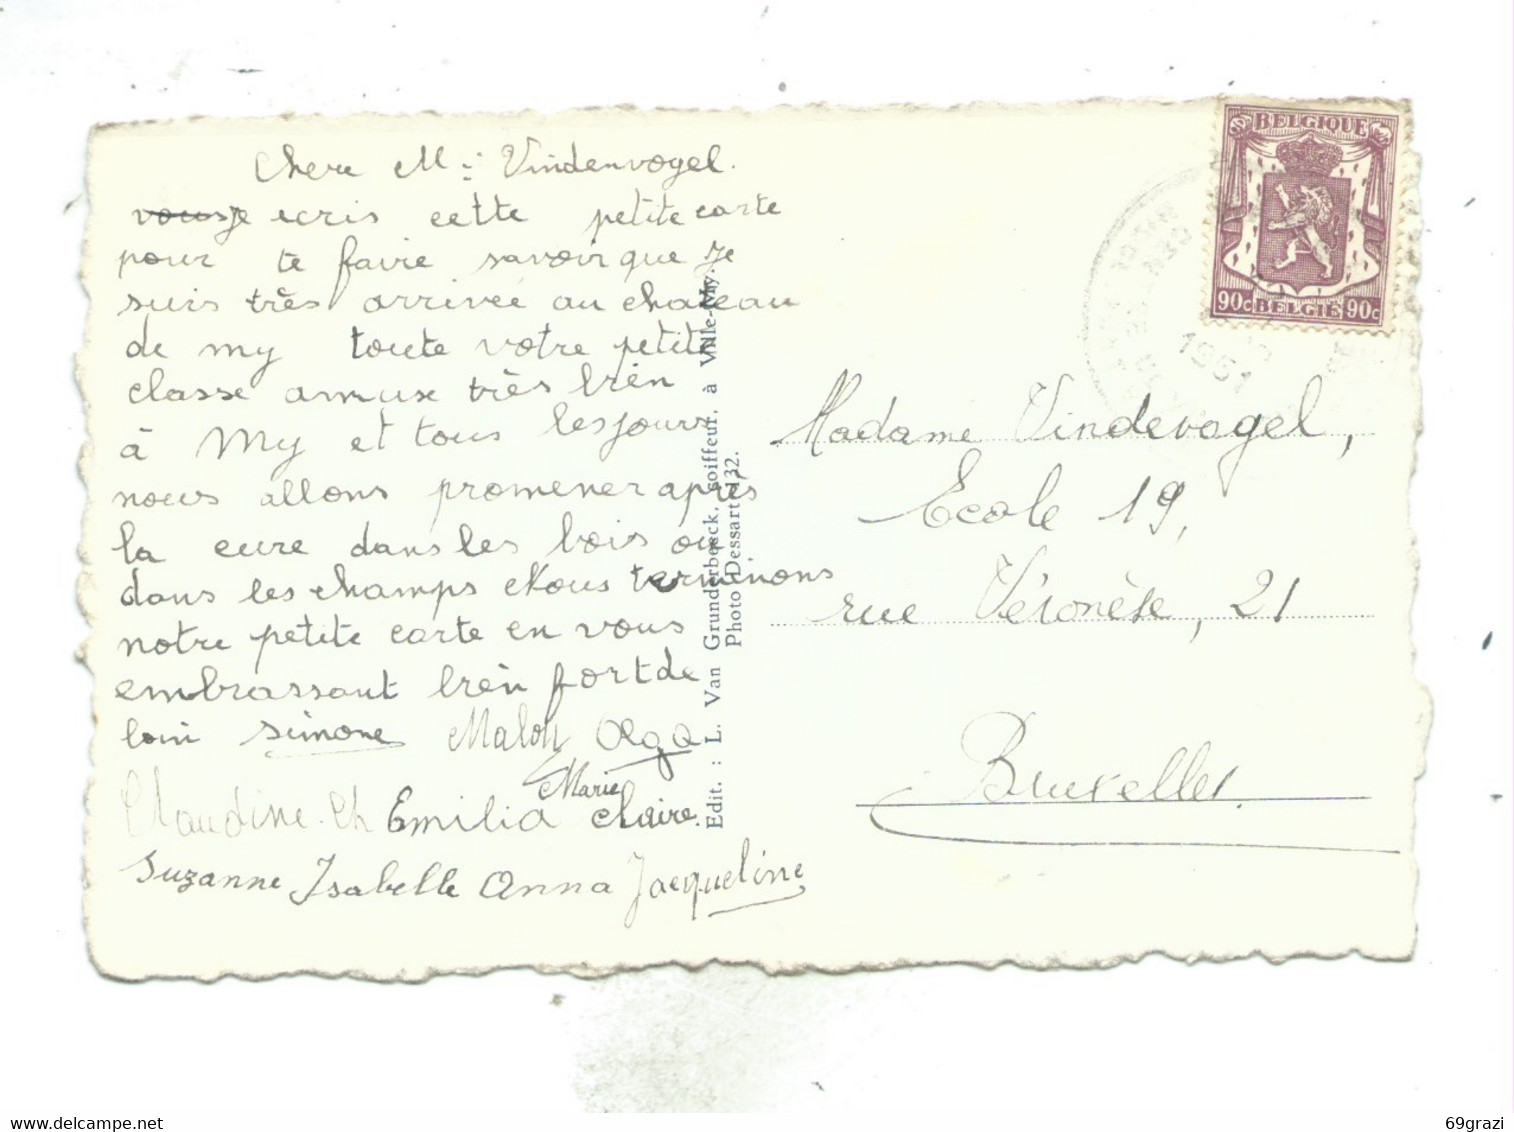 Chere M: Vindenvogel.
vous je ecris cette petite carte
pour te faire savoir que je
suis très arrivée au chateau
de my toute votre petite
classe amuse très bien
à My et tous les jours
nous allons promener après
la cure dans les bois ou
dans les champs Nous terminons
notre petite carte en vous
embrassant bien fort de
loin Simone Malou Olga
Marie
Claudine. Ch Emilia Claire.
Suzanne Isabelle Anna Jacqueline
Edit. : L. Van Grunderbeeck, coiffeur, à Ville-My.
Photo Dessart 132.
BELGIQUE
90c BELGIË 90c
1951
Madame Vindevogel,
Ecole 19,
rue Véronèse, 21
Bruxelles.
69grazi